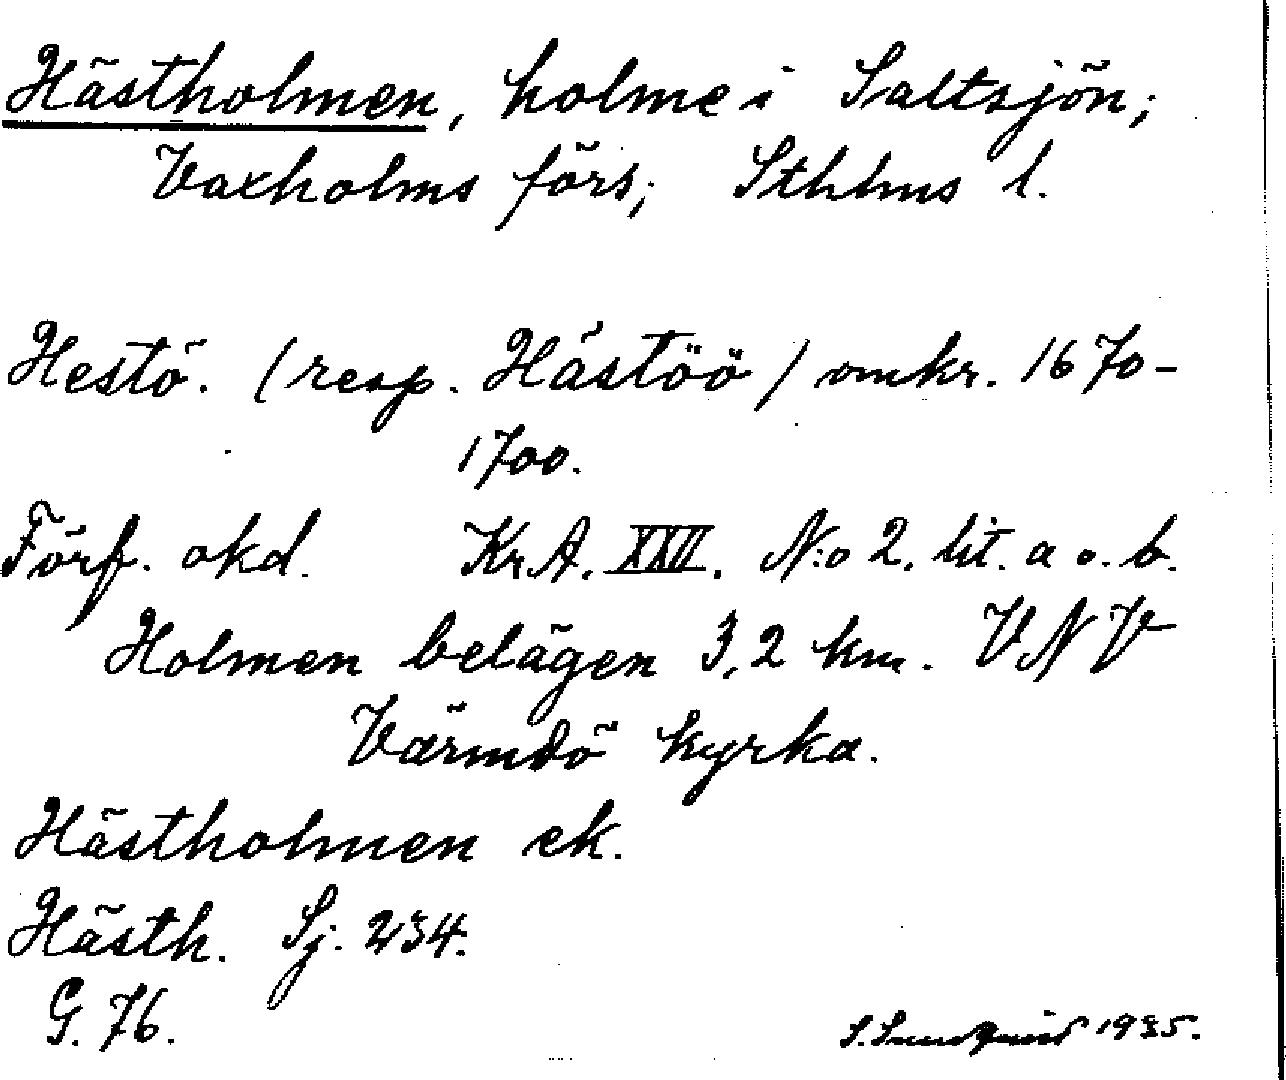 Hästholmen, holme i Saltsjön;
Vaxholms förs; Sthlms l.
Hestö. (resp. Hästöö) omkr. 1670-
1700.
Förf. okd. Kr.A. XXII. N:o 2. lit. a o. b.
Holmen belägen 3,2 km. VNV
Värmdö kyrka.
Hästholmen ek.
Hästh. Sj. 234.
G. 76.
S. Sundquist 1935.